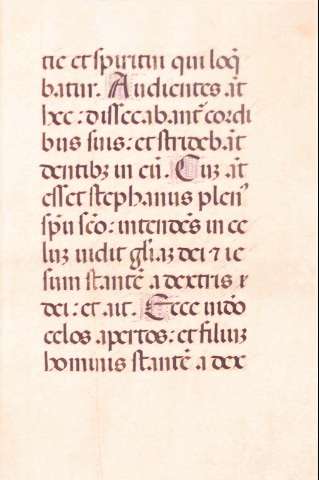 tie et spiritui qui loq̃
batur. Audientes aũt
hec: dissecabant̃ cordi
bus suis: et stridebãt
dentibꝫ in eũ. Cuꝫ aũt
esset stephanus plen⁹
spũ sc̃o: intendẽs in ce
luꝫ vidit gl̃iaꝫ dei ⁊ ie
sum stantẽ a dextris v̾
dei: et ait. Ecce video
celos apertos: et filiuꝫ
hominis stantẽ a dex